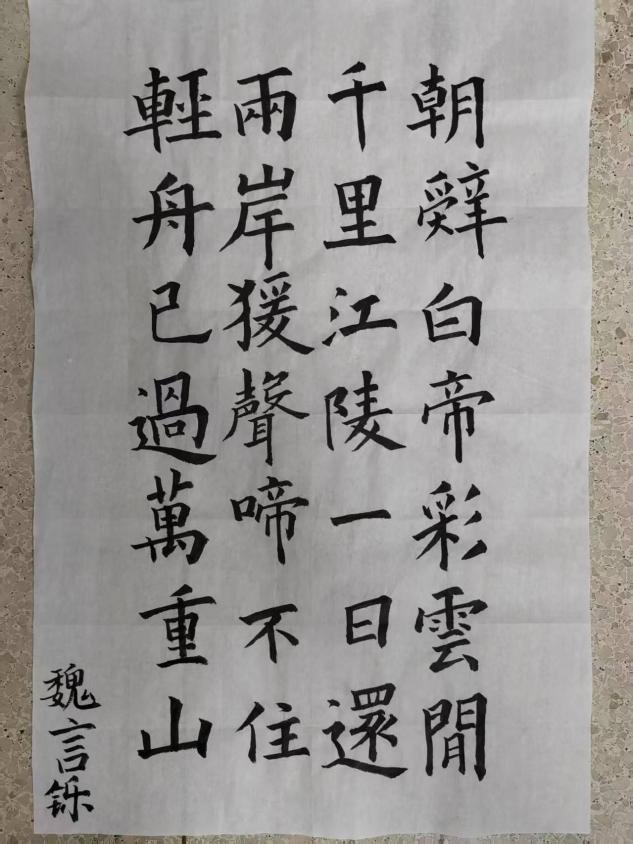 朝辤白帝彩雲閒
千里江陵一日還
兩岸猨聲啼不住
輕舟已過萬重山
魏言铄